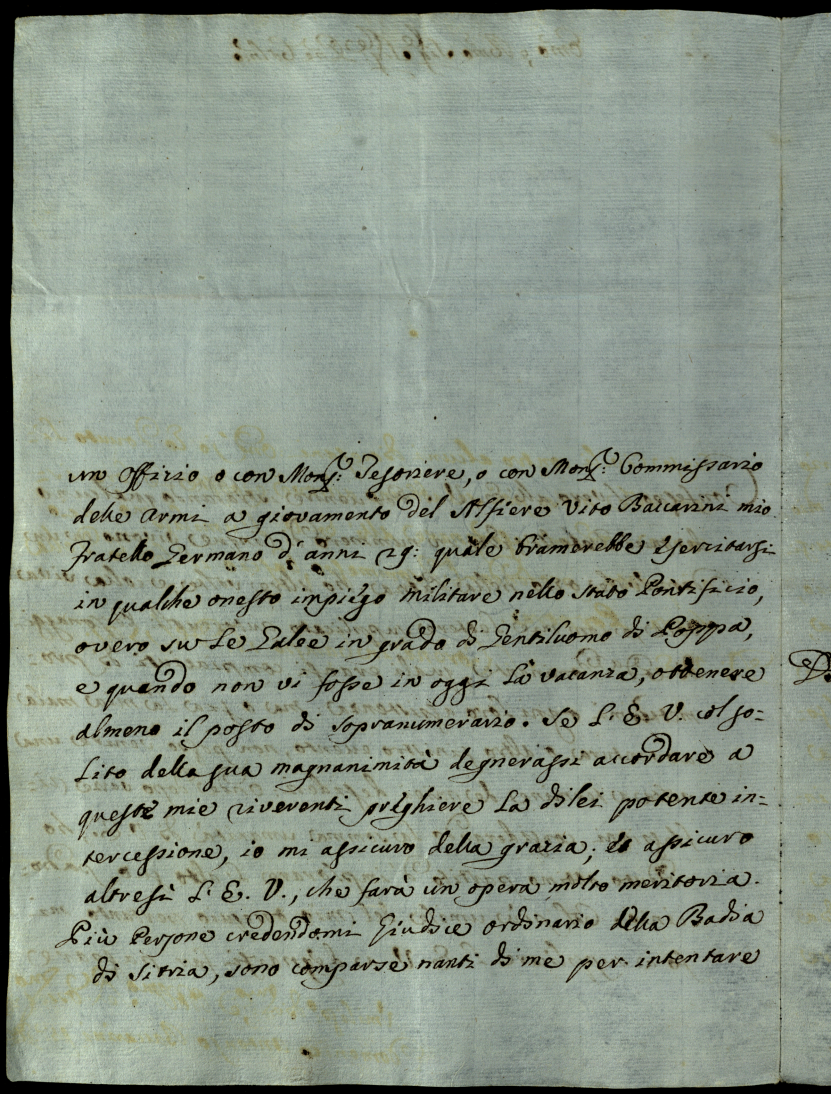 un Offizio o con Monsr: Tesoriere, o con Monsr: Commissario
delle Armi a giovamento del Alfiere Vito Baccarini mio
Fratello Germano d'anni 29: quale bramerebbe esercitarsi
in qualche onesto impiego Militare nello Stato Pontificio,
overo su Le Galee in grado di Gentiluomo di Poppa,
e quando non vi fosse in oggi La vacanza, ottenere
almeno il posto di sopranumerario. Se L'E. V. col so=
Lito della sua magnanimità degnerassi accordare a
queste mie riverenti preghiere La di lei potente in=
tercessione, io mi assicuro della grazia; ed assicuro
altresì L'E. V., che farà un opera molto meritoria.
Più Persone credendomi Giudice ordinario della Badia
di Sitria, sono comparse nanti di me per intentare